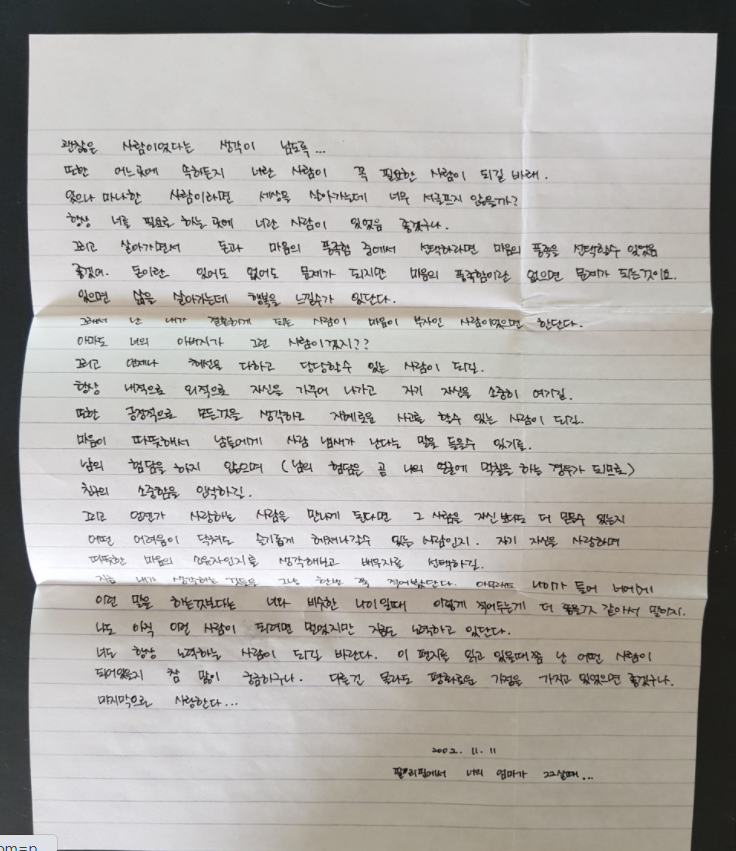 괜찮은 사람이였다는 생각이 남도록...
또한 어느곳에 속하든지 너란 사람이 꼭 필요한 사람이 되길 바래.
있으나 마나한 사람이라면 세상을 살아가는데 너무 서글프지 않을까?
항상 너를 필요로 하는 곳에 너란 사람이 있었음 좋겠구나.
그리고 살아가면서 돈과 마음의 풍족함 중에서 선택하라면 마음의 풍족을 선택할수 있었음
좋겠어. 돈이란 있어도 없어도 문제가 되지만 마음의 풍족함이란 없으면 문제가 되는것이요.
있으면 삶을 살아가는데 행복을 느낄수가 있단다.
그래서 난 내가 결혼하게 되는 사람이 마음이 부자인 사람이였으면 한단다.
아마도 너의 아버지가 그런 사람이겠지??
그리고 언제나 최선을 다하고 당당할수 있는 사람이 되길.
항상 내적으로 외적으로 자신을 가꾸어 나가고 자기 자신을 소중히 여기길.
또한 긍정적으로 모든것을 생각하고 지혜로운 사고를 할수 있는 사람이 되길.
마음이 따뜻해서 남들에게 사람 냄새가 난다는 말을 들을수 있기를.
남의 험담을 하지 않으며 (남의 험담은 곧 나의 얼굴에 먹칠을 하는 경우가 되므로)
친구의 소중함을 인식하길.
그리고 언젠가 사랑하는 사람을 만나게 된다면 그 사람을 자신보다도 더 믿을수 있는지
어떤 어려움이 닥쳐도 슬기롭게 헤쳐나갈수 있는 사람인지. 자기 자신을 사랑하며
따뜻한 마음의 소유자인지를 생각해보고 배우자를 선택하길.
지금 내가 생각하는 것들을 그냥 한번 쭉 적어보았단다. 아무래도 나이가 들어 너에게
이런 말을 하는것보다는 너와 비슷한 나이일때 이렇게 적어두는게 더 좋을것 같아서 말이지.
나도 아직 이런 사람이 되려면 멀었지만 지금도 노력하고 있단다.
너도 항상 노력하는 사람이 되길 바란다. 이 편지를 읽고 있을때쯤 난 어떤 사람이
되어있을지 참 많이 궁금하구나. 다른건 몰라도 평화로운 가정을 가지고 있었으면 좋겠구나.
마지막으로 사랑한다...
2002. 11. 11
필리핀에서 너의 엄마가 22살때...